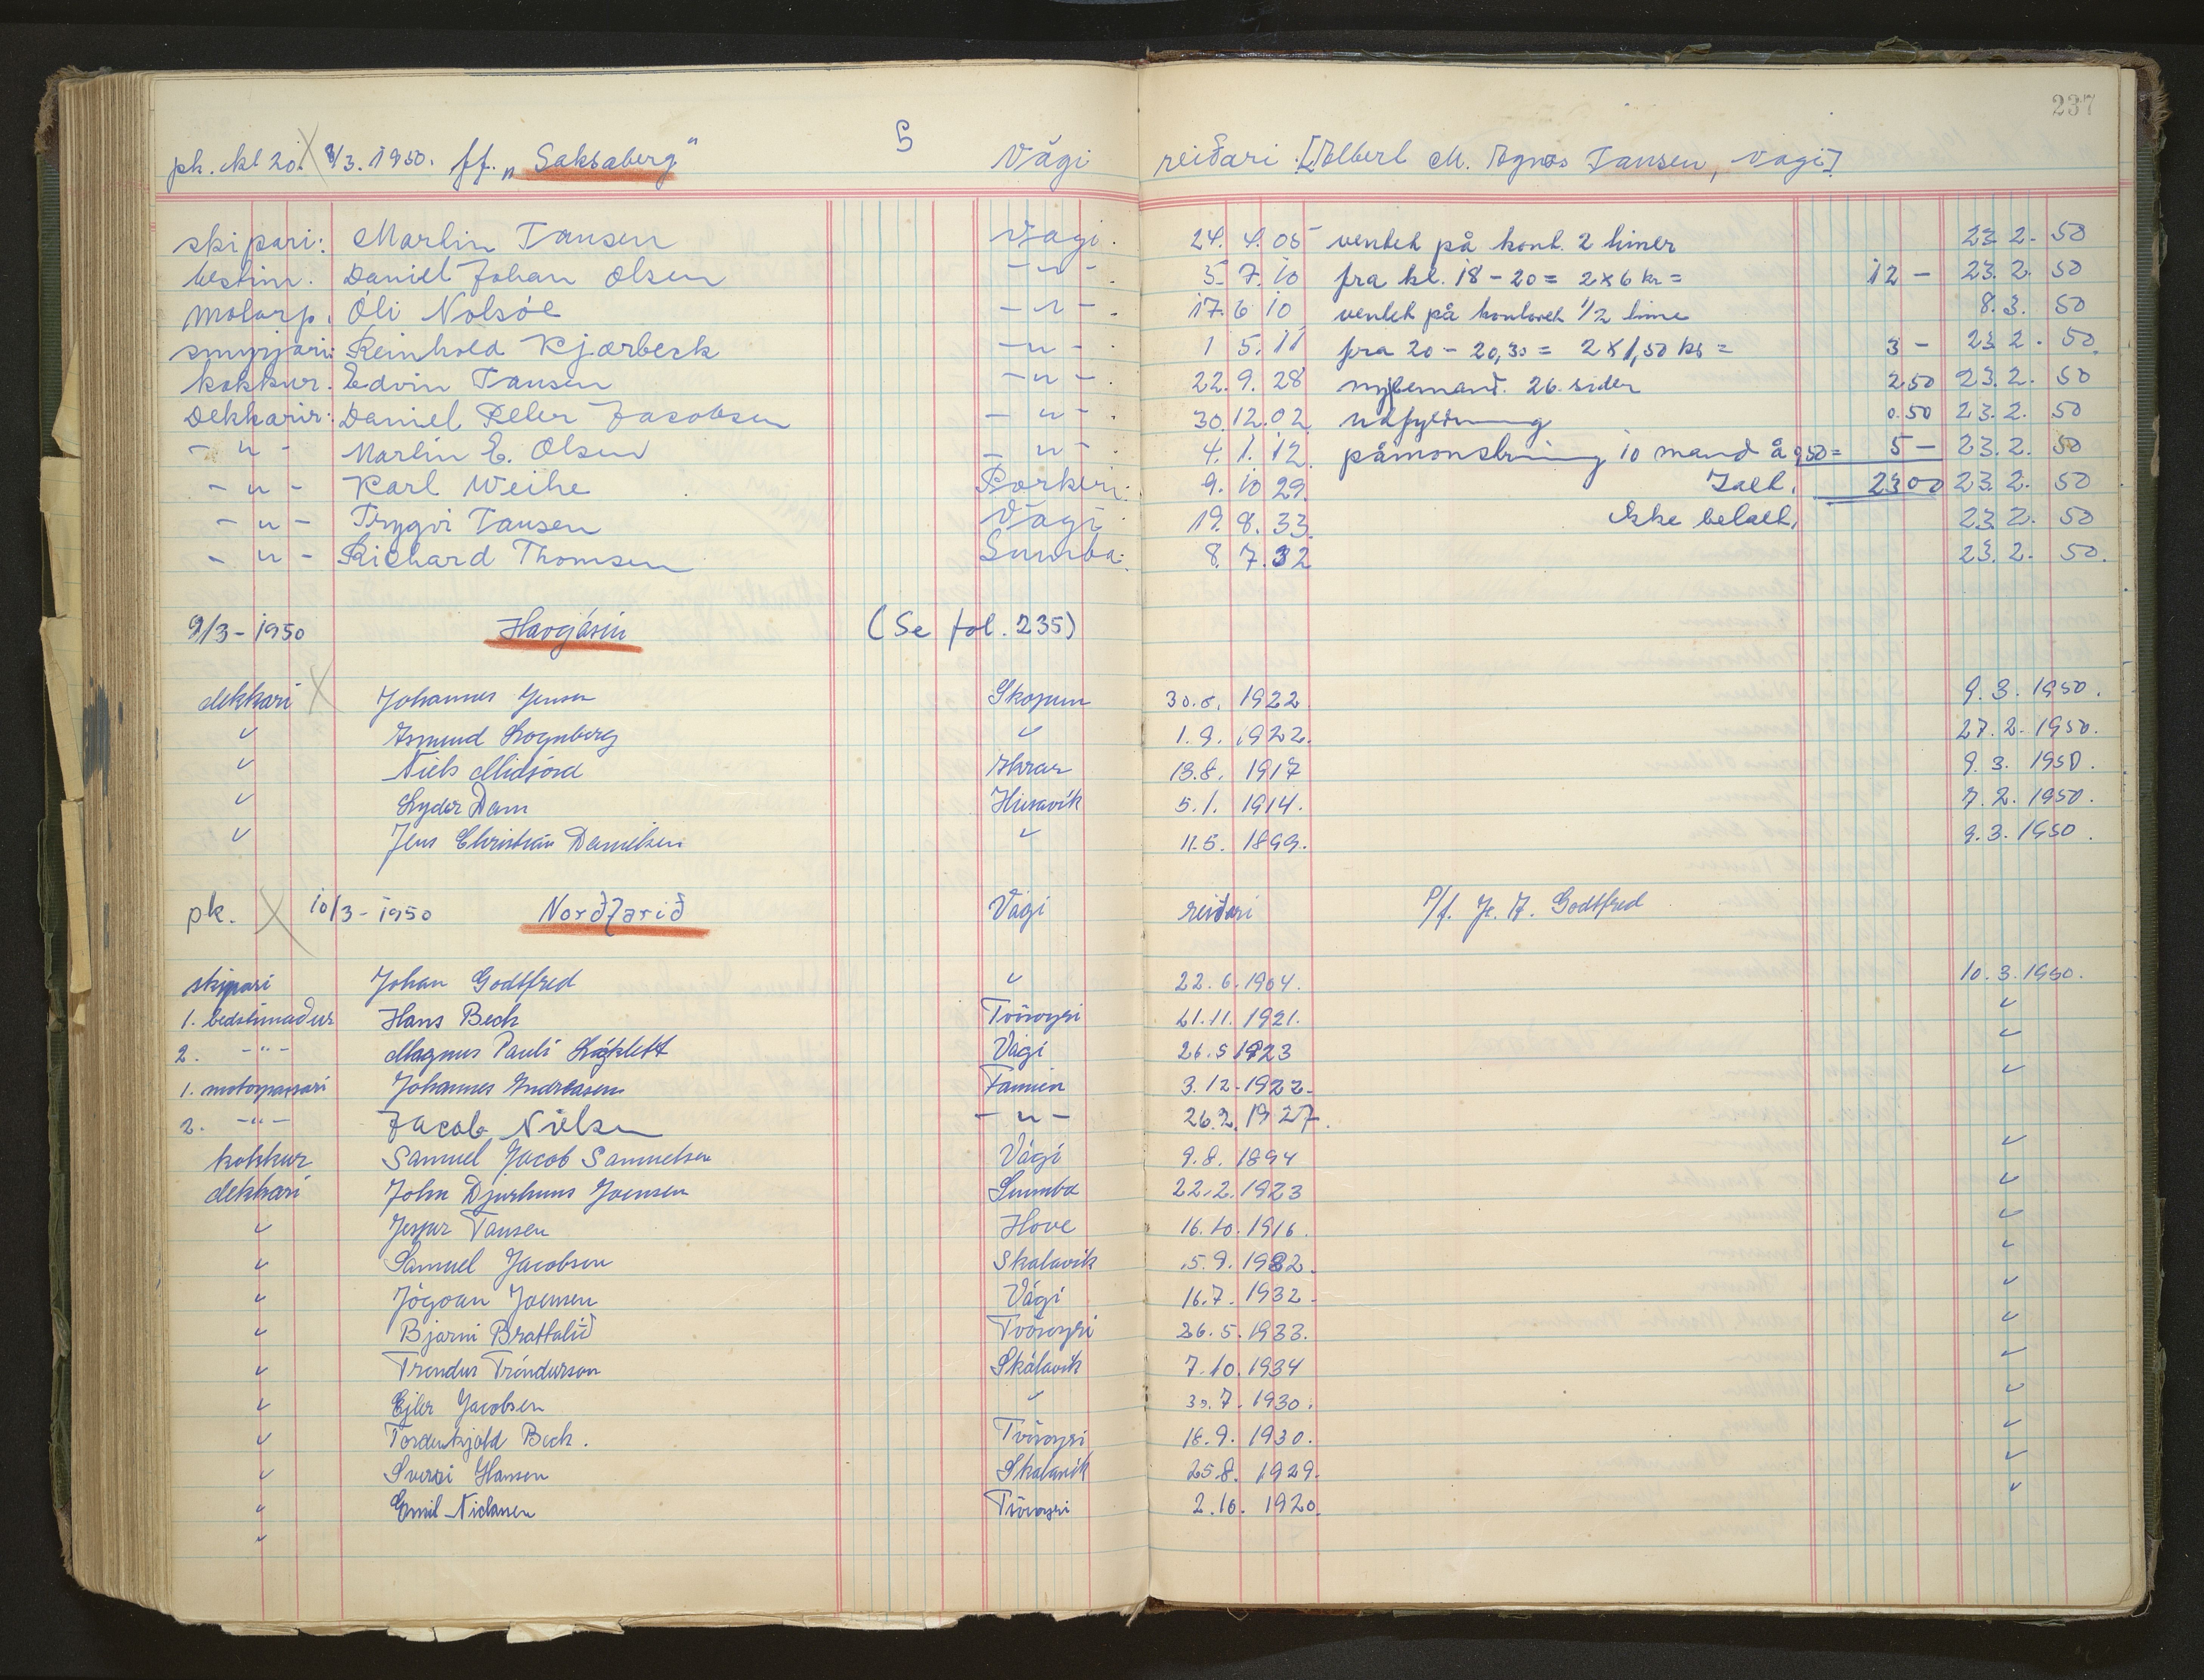 237
pk. kl 20. 8/3. 1950. ff. „Saksaberg" S Vági reiðari [Albert M. Agnas Tausen, Vági]
skipari: Martin Tausen Vági. 24. 4. 05 ventet på kont. 2 timer 23. 2. 50
bestim. Daniel Johan Olsen –"– 5. 7. 10 fra kl. 18 – 20 = 2 x 6 kr = 12 – 23. 2. 50
Motorp. Óli Nolsöe –"– 17. 6 10 ventet på kontoret 1/2 time 8. 3. 50
smyrjari: Reinhold Kjærbeck –"– 1 5. 11 fra 20 – 20,30 = 2 x 1,50 kr = 3 – 23. 2. 50
kokkur. Edvin Tausen –"– 22. 9. 28 nybemand. 26. sider 2.50 23. 2. 50
Dekkarir: Daniel Peter Jacobsen –"– 30. 12. 02 udfyldning 0.50 23. 2. 50
–"– Martin E. Olsen –"– 4. 1. 12 påmonstring 10 mand á 0,50 = 5 – 23. 2. 50
–"– Karl Weihe Porkeri. 9. 10 29 Ialt. 23 00 23. 2. 50
–"– Trygvi Tausen Vági 19. 8. 33 Ikke betalt. 23 2. 50
–"– Richard Thomsen Sumba. 8. 7. 32 23. 2. 50.
9/3 – 1950 Havgásin (Se fol. 235)
dekkari Johannes Jensen Skopun 30. 8. 1922 9. 3. 1950.
" Asmund Sognberg " 1. 9. 1922. 27. 2. 1950.
" Niels Midjord Skrar 13. 8. 1917 9. 3. 1950.
" Lyder Dam Húsavík 5. 1. 1914. 7. 2. 1950.
" Jens Christian Danielsen " 11. 5. 1899. 9. 3. 1950.
pk. 10/3 – 1950 Norðfarið Vági reiðari P/f. J. A. Godtfred
skipari Johan Godtfred " 22. 6. 1904. 10. 3. 1950.
1. bedstimaður Hans Beck Tvöroyri 21. 11. 1921. "
2. –"– Magnus Pauli Vági 26. 5 1923 "
1. motorpassari Johannes Andreasen Famien 3. 12 – 1922. "
2. –"– Jacob Nielsen –"– 26. 2. 1927.
kokkur Samuel Jacob Samuelsen Vági 9. 8. 1894 "
dekkari John Djurhuus Joensen Sumba 22. 2. 1923 "
" Jespur Tausen Hove 16. 10. 1916. "
" Samuel Jacobsen Skalavik 5. 9. 1932. "
" Jógvan Joensen Vági 16. 7. 1932. "
" Bjarni Brattalíð Tvöroyri 26. 5. 1933. "
" Trondur Tróndurson Skálavik 7. 10. 1934 "
" Ejler Jacobsen " 30. 7. 1930. "
" Tordenskjold Beck. Tvöroyri 18. 9. 1930. "
" Sverri Hansen Skalavik 25. 8. 1929. "
" Emil Niclasen Tvöroyri 2. 10. 1920. "
"